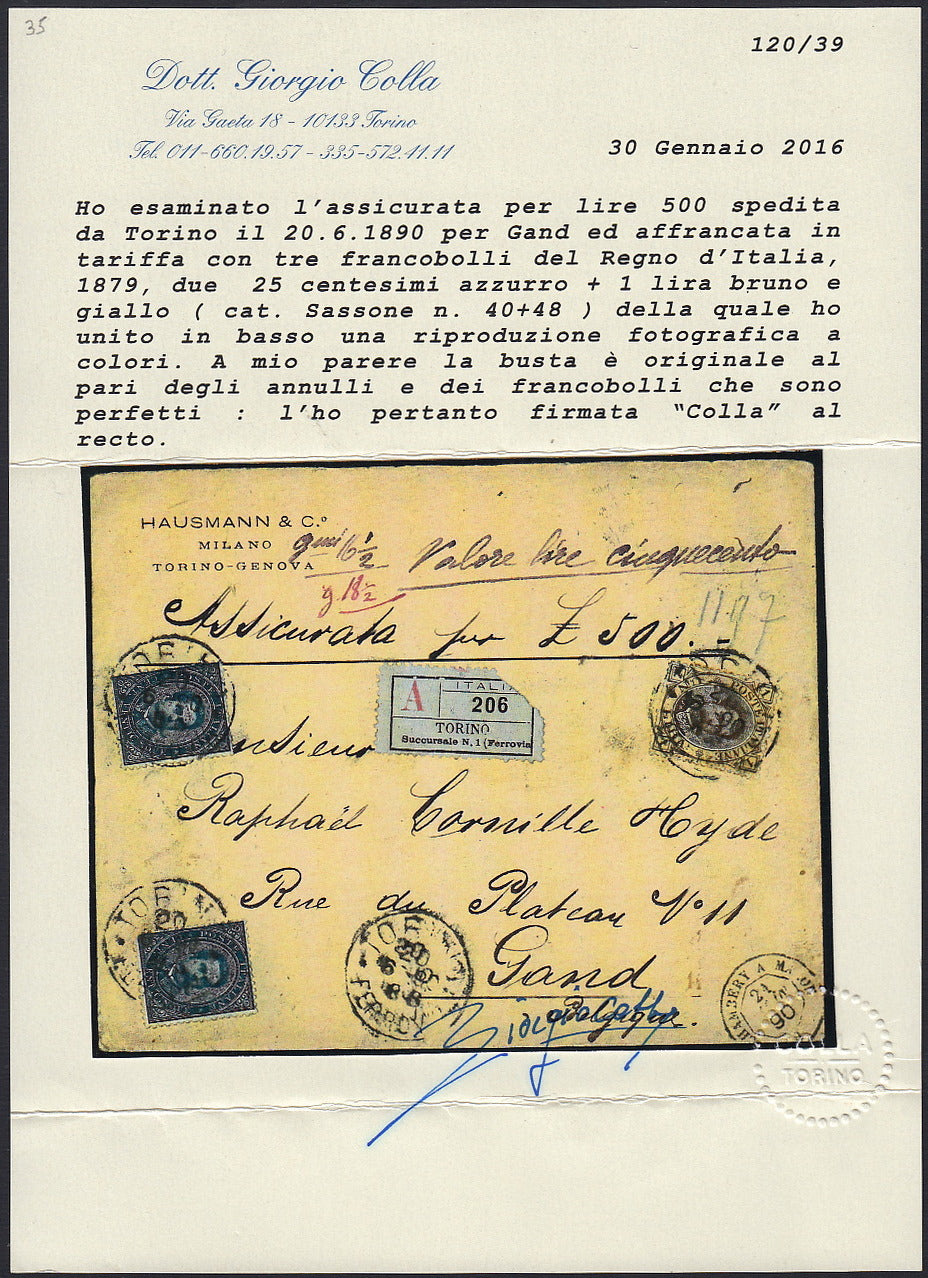 35
120/39
Dott. Giorgio Colla
Via Gaeta 18 - 10133 Torino
Tel. 011-660.19.57 - 335-572.41.11
30 Gennaio 2016
Ho esaminato l'assicurata per lire 500 spedita
da Torino il 20.6.1890 per Gand ed affrancata in
tariffa con tre francobolli del Regno d'Italia,
1879, due 25 centesimi azzurro + 1 lira bruno e
giallo ( cat. Sassone n. 40+48 ) della quale ho
unito in basso una riproduzione fotografica a
colori. A mio parere la busta è originale al
pari degli annulli e dei francobolli che sono
perfetti : l'ho pertanto firmata "Colla" al
recto.
HAUSMANN & C.º
MILANO
TORINO-GENOVA
16 1/2
Valore lire cinquecento
g 18 1/2
Assicurata per £ 500.-
A
ITALIA
206
TORINO
Succursale N. 1 (Ferrovia
Raphaël Cornille Hyde
Rue du Plateau Nº 11
Gand
TORINO
20
90
COLLA
TORINO